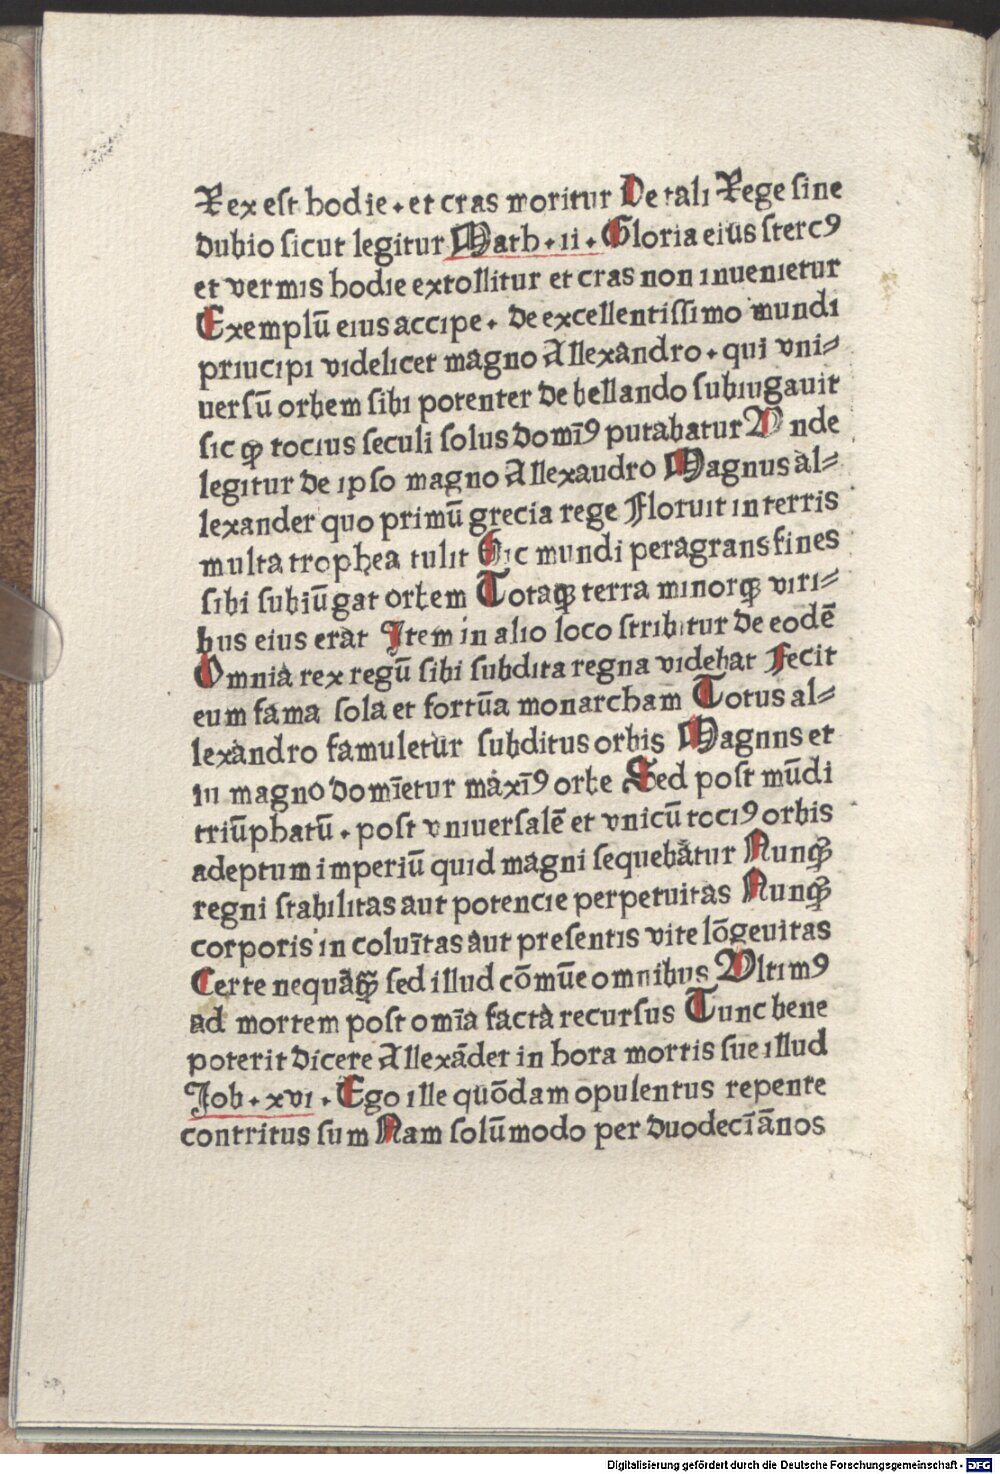 Rex est hodie . et cras moritur De tali Rege sine
dubio sicut legitur Math . ii . Gloria eius stercꝰ
et vermis hodie extollitur et cras non inuenietur
Exemplū eius accipe . de excellentissimo mundi
principi videlicet magno Allexandro . qui vni⸗
uersū orbem sibi potenter debellando subiugauit
sic ꝙ tocius seculi solus domīꝰ putabatur Vnde
legitur de ipso magno Allexaudro Magnus al⸗
lexander quo primū grecia rege Floruit in terris
multa trophea tulit Hic mundi peragrans fines
sibi subiūgat orbem Totaꝙ terra minorꝙ viri⸗
bus eius erat Item in alio loco stribitur de eodē
Omnia rex regū sibi subdita regna videbat Fecit
eum fama sola et fortūa monarcham Totus al⸗
lexandro famuletur subditus orbis Magnns et
in magno domīetur maxīꝰ orbe Sed post mūdi
triūphatū . post vniuersalē et vnicū tociꝰ orbis
adeptum imperiū quid magni sequebātur Nunꝙ̄
regni stabilitas aut potencie perpetuitas Nunꝙ̄
corporis in coluītas aut presentis vite lōgeuitas
Certe nequāꝙ̄ sed illud cōmūe omnibus Vltimꝰ
ad mortem post omīa facta recursus Tunc bene
poterit dicere Allexāder in hora mortis sue illud
Job . xvi . Ego ille quōdam opulentus repente
contritus sum Nam solūmodo per duodecī ānos
Digitalisierung gefördert durch die Deutsche Forschungsgemeinschaft - DFG